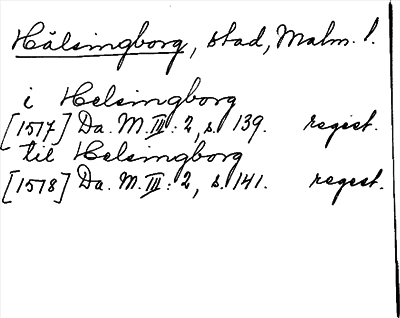 Hälsingborg, stad, Malm. l.
i Helsingborg
[1517] Da. M. III: 2, s. 139. regist.
til Helsingborg
[1518] Da. M. III: 2, s. 141. regest.